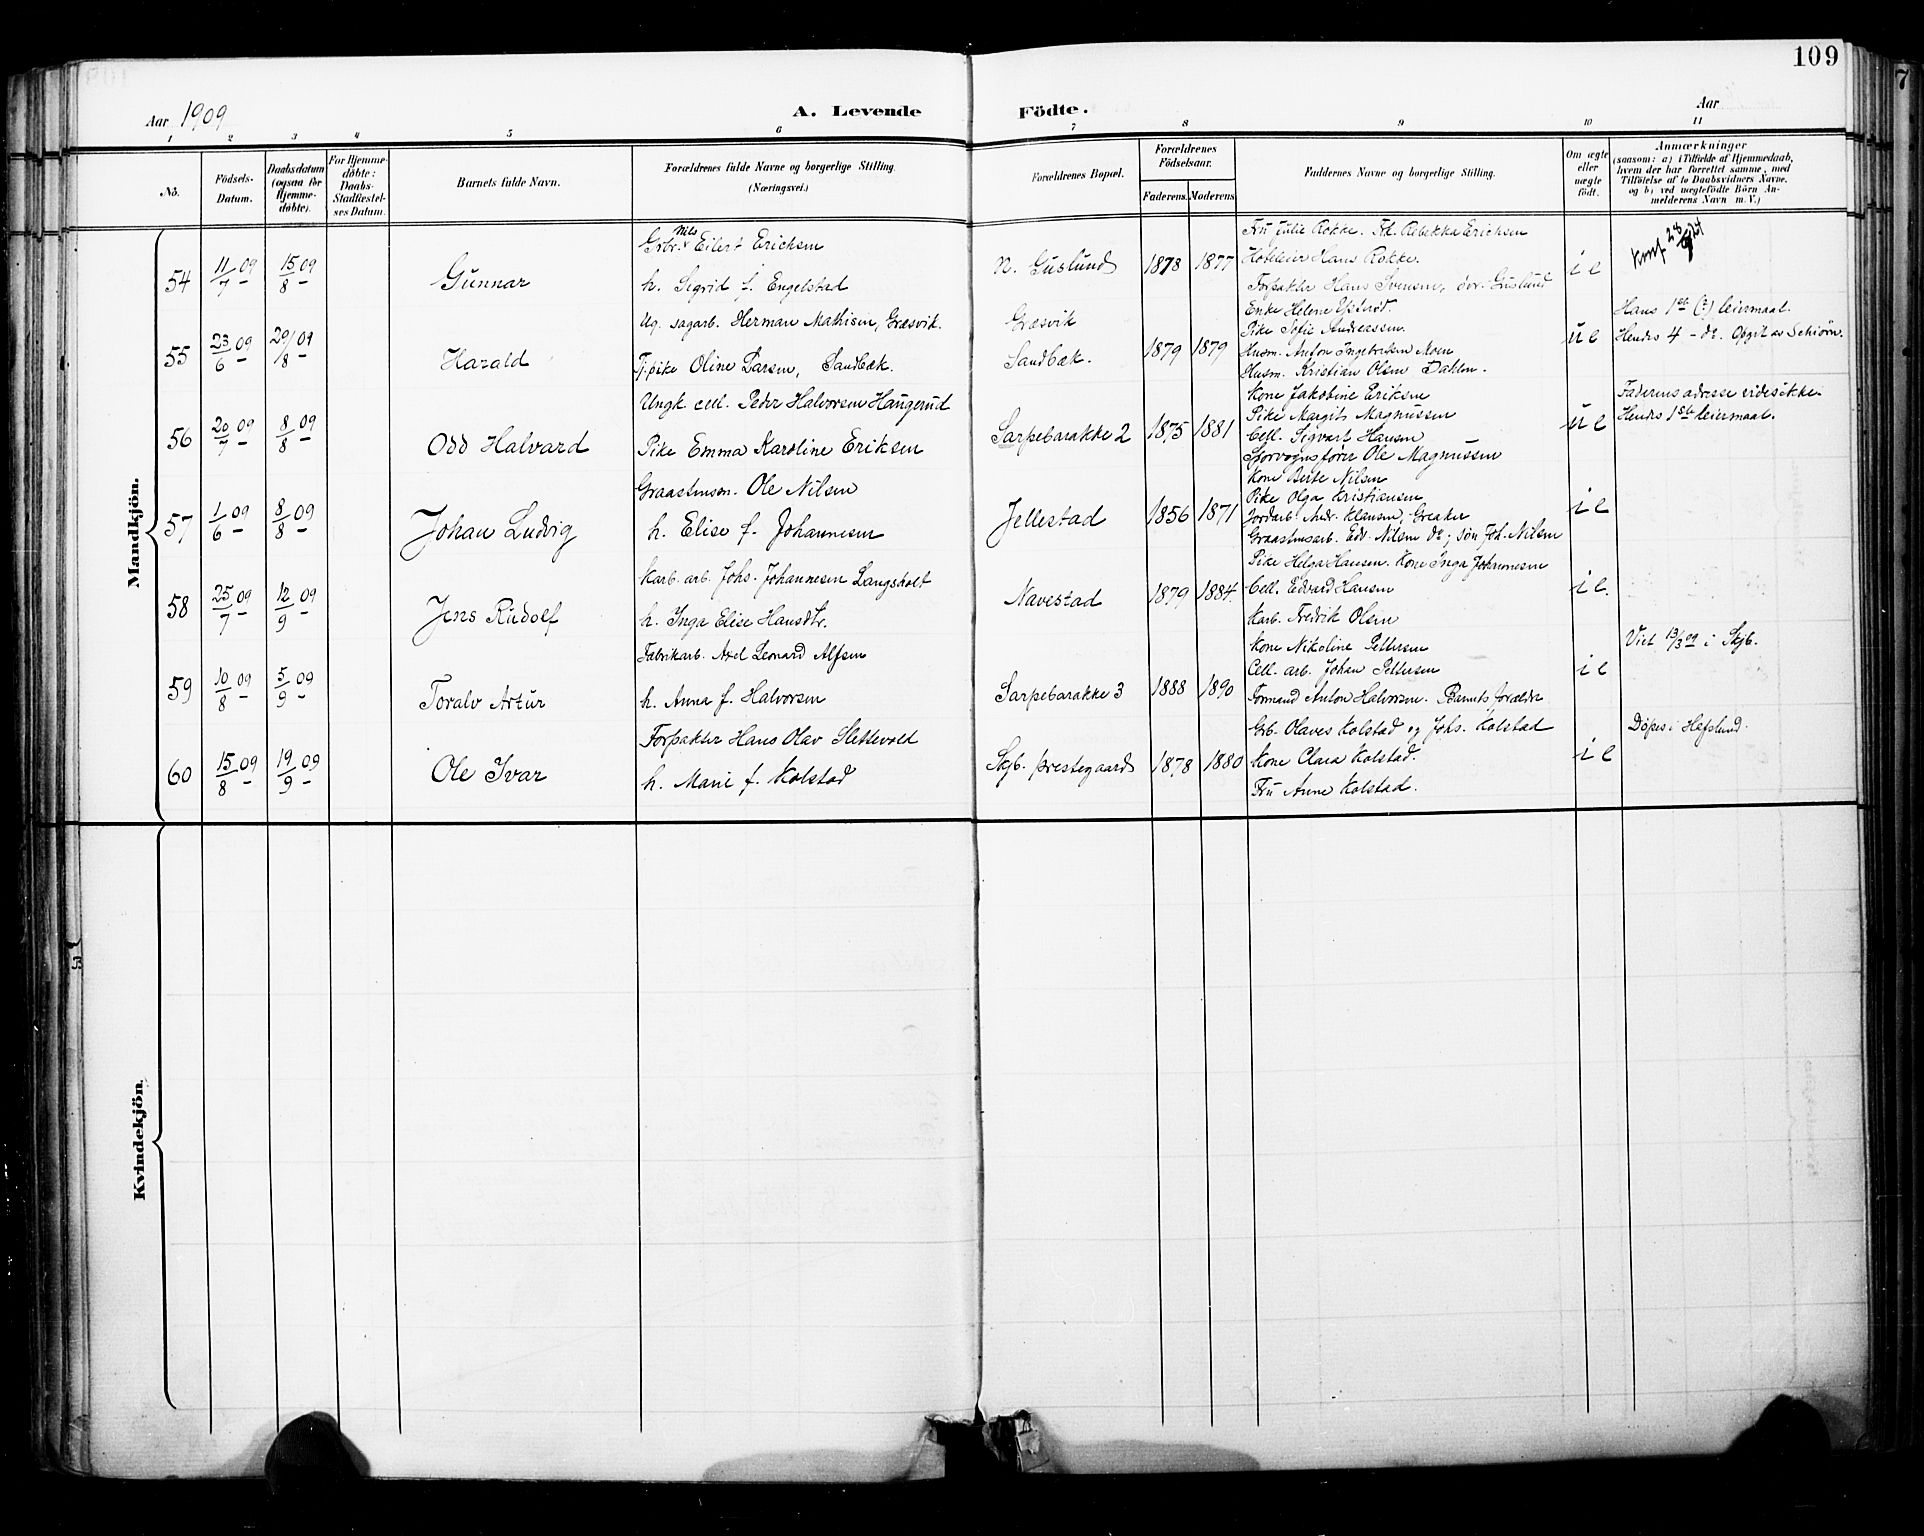 109
Aar 1909
A. Levende Födte.
Aar
1 2 3 4 5 6 7 8 9 10 11
No.
Födsels-Datum.
Daabsdatum (ogsaa for Hjemme-døbte).
For Hjemme-døbte: Daabs-Stadfæstel-ses Datum.
Barnets fulde Navn.
Forældrenes fulde Navne og borgerlige Stilling. (Næringsvei.)
Forældrenes Bopæl.
Forældrenes Födselsaar.
Faderens. Moderens.
Faddernes Navne og borgerlige Stilling.
Om ægte eller uægte født.
Anmærkninger
(saasom: a) i Tilfælde af Hjemmedaab, hvem der har forrettet samme, med Tilföielse af to Daabsvidners Navne, og b) ved uægtefödte Börn Anmelderens Navn m. V.)
Mandkjön.
54 11/7 09 15/8 09 Gunnar
Grbr. Nils Eilert Erichsen
h. Sigrid f. Engelstad
N. Guslund 1878 1877
Fru Julie Rokke. Frk. Rebekka Erichsen
Hoteleier Hans Rokke.
Forpakter Hans Svensen, övr. Guslund
i e
Konf 28/9 24
55 23/6 09 29/8 09 Harald
Ug. sagarb. Herman Mathisen, Græsvik.
Tj.pike Oline Larsen, Sandbæk.
Græsvik
Sandbæk. 1879 1879
Enke Helene Ystrød.
Pike Sofie Andreassen.
Husm. Anton Ingebretsen Moen
Husm. Kristian Olsen Dahlen.
u e
Hans 1ste (?) leiermaal.
Hendes 4 - do. Opgit av Schiørn.
56 20/7 09 8/8 09 Odd Halvard
Ungk. cell. Peder Halvorsen Haugerud
Pike Emma Karoline Eriksen
Sarpebarakke 2 1875 1881
Kone Jakobine Eriksen
Pike Margit Magnussen
Cell. Sigvart Hansen
Sporvognsfører Ole Magnussen
u e
Faderens adresse vides ikke.
Hendes 1ste leiermaal.
57 1/6 09 8/8 09 Johan Ludvig
Graastensm. Ole Nilsen
h. Elise f. Johannesen
Jellestad 1856 1871
Kone Berte Nilsen
Pike Olga Kristiansen
Jordarb. Andr. Klausen, Greaker
Graastensarb. Edv. Nilsen do; søn Joh. Nilsen
i e
58 25/7 09 12/9 09 Jens Rudolf
Karb. arb. Johs. Johannesen Langsholt
h. Inga Elise Hansdtr.
Navestad 1879 1884.
Pike Helga Hansen. Kone Inga Johannesen
Cell. Edvard Hansen
Karb. Fredrik Olsen
i e.
59 10/8 09 5/9 09 Toralv Artur
Fabrikarb. Axel Leonard Alfsen
h. Anna f. Halvorsen
Sarpebarakke 3 1888 1890
Kone Nikoline Pettersen
Cell. arb. Johan Pettersen
Formand Anton Halvorsen. Barnets forældre
i e
Viet 13/3 09 i Skjb.
60 15/8 09 19/9 09 Ole Ivar
Forpakter Hans Olav Slettevold
h. Marie f. Kolstad
Skjb. prestegaard 1878 1880
Grb. Olaves Kolstad og Johs. Kolstad
Kone Clara Kolstad.
Fru Anne Kolstad.
i e
Döpes i Hafslund.
Kvindekjön.